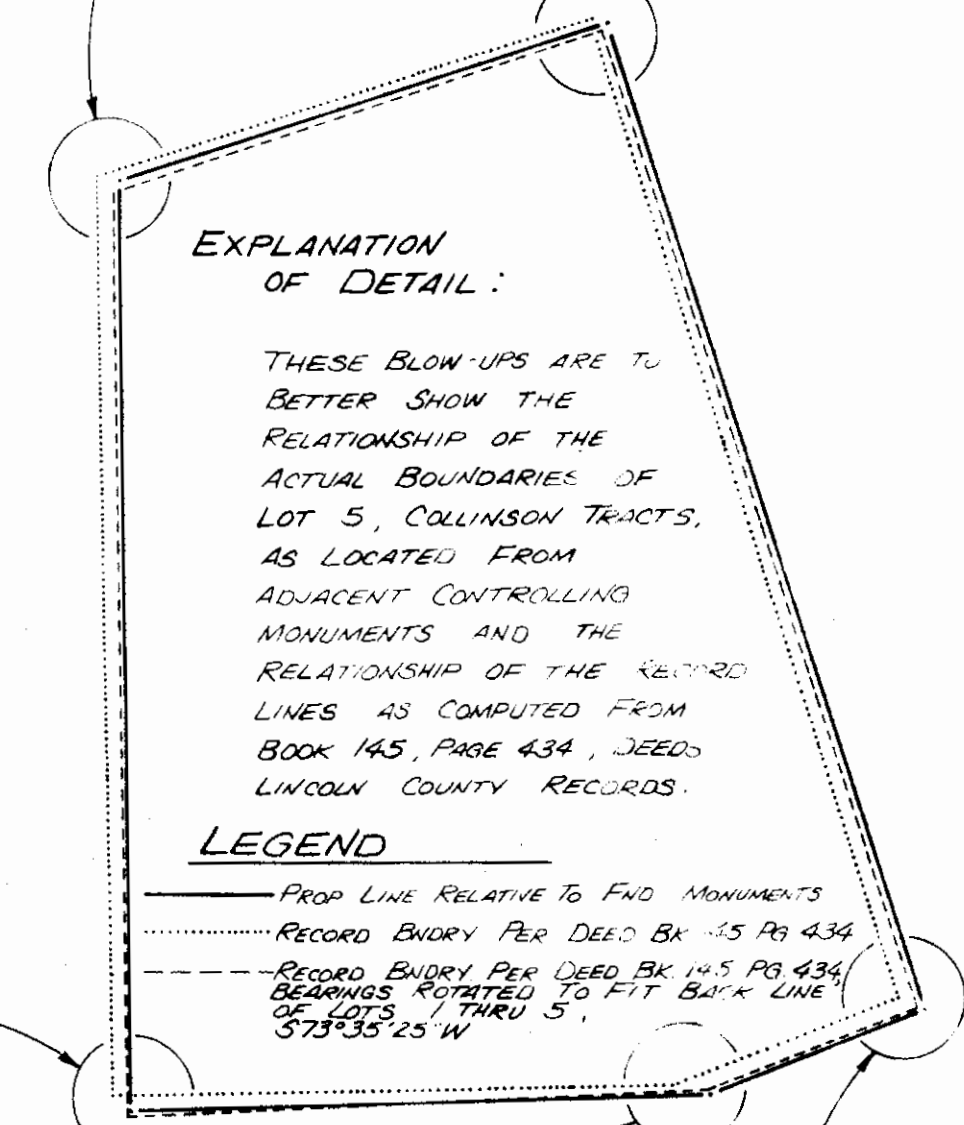 EXPLANATION
OF DETAIL :
THESE BLOW-UPS ARE TO
BETTER SHOW THE
RELATIONSHIP OF THE
ACTUAL BOUNDARIES OF
LOT 5, COLLINSON TRACTS,
AS LOCATED FROM
ADJACENT CONTROLLING
MONUMENTS AND THE
RELATIONSHIP OF THE RECORD
LINES AS COMPUTED FROM
BOOK 145, PAGE 434, DEEDS
LINCOLN COUNTY RECORDS.
LEGEND
PROP LINE RELATIVE TO FND MONUMENTS
RECORD BNDRY PER DEED BK 145 PG 434
RECORD BNDRY PER DEED BK. 145 PG. 434,
BEARINGS ROTATED TO FIT BACK LINE
OF LOTS 1 THRU 5,
S73°35'25"W